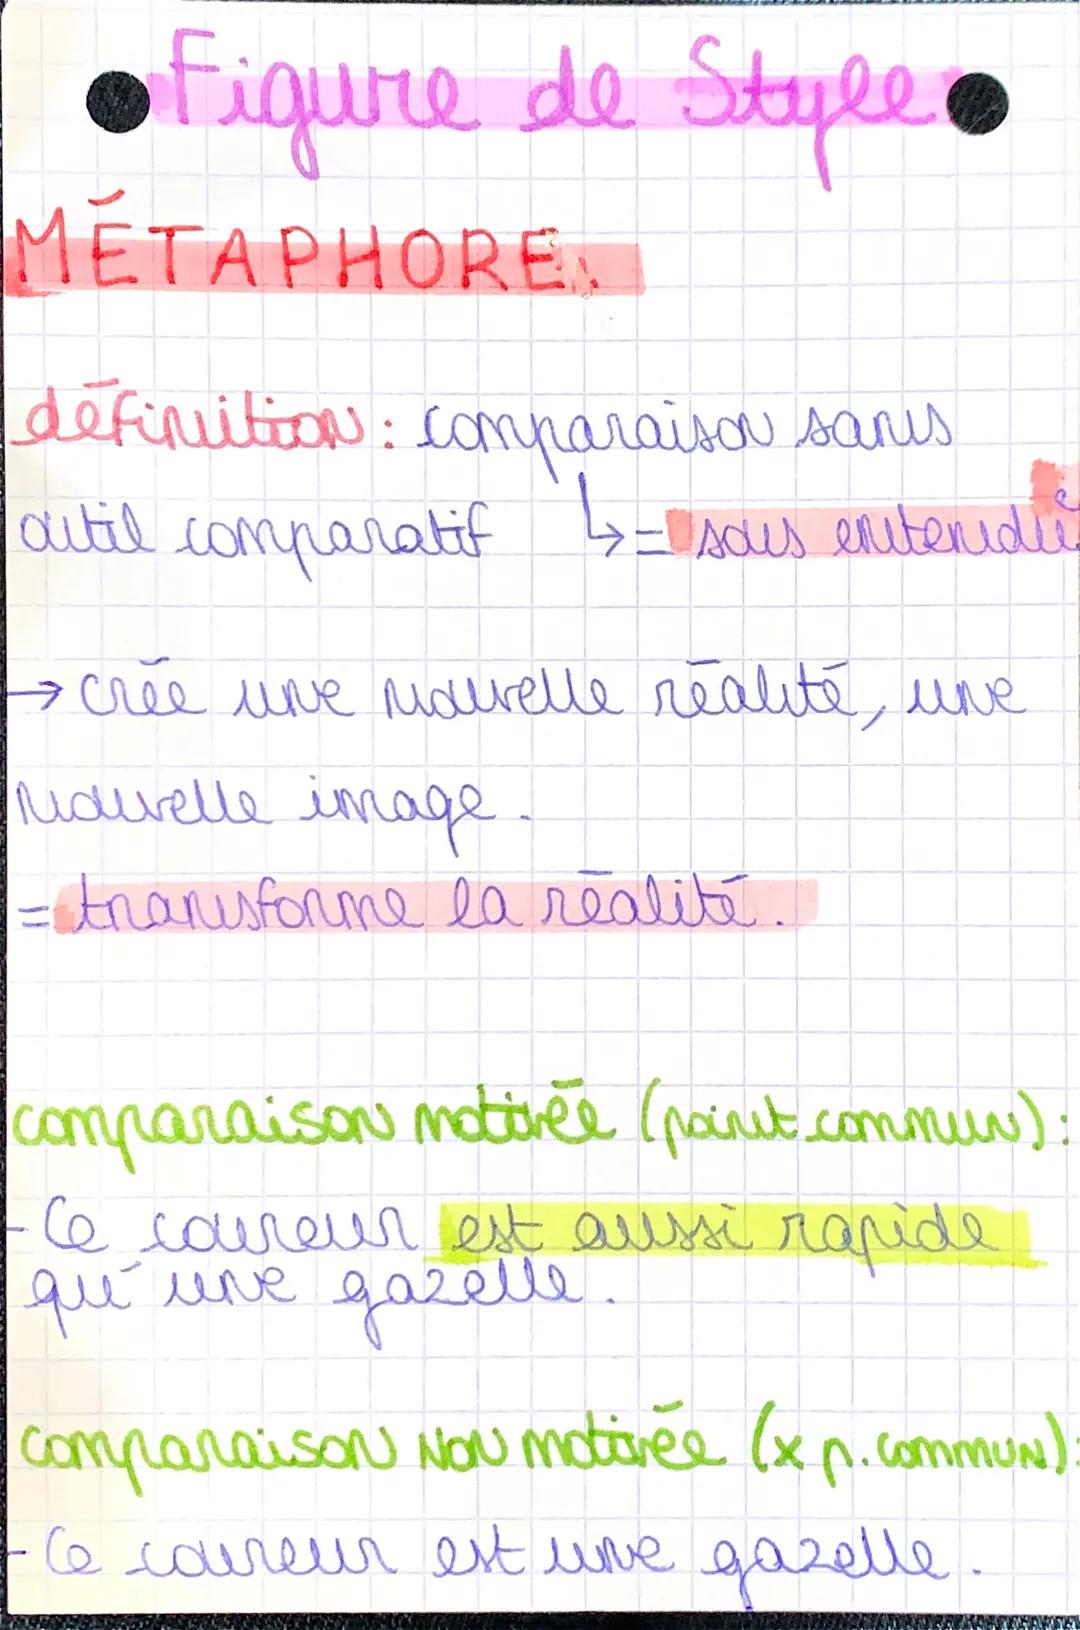 Figure de Style
MÉTAPHORE.
définition : comparaison sans
outil comparatif ↳ = sous entendu
→ crée une nouvelle réalité, une
nouvelle image.
= transforme la réalité.
comparaison motivée (point commun) :
- Ce coureur est aussi rapide
qu'une gazelle.
comparaison NON motivée (x p. commun) :
- Ce coureur est une gazelle.